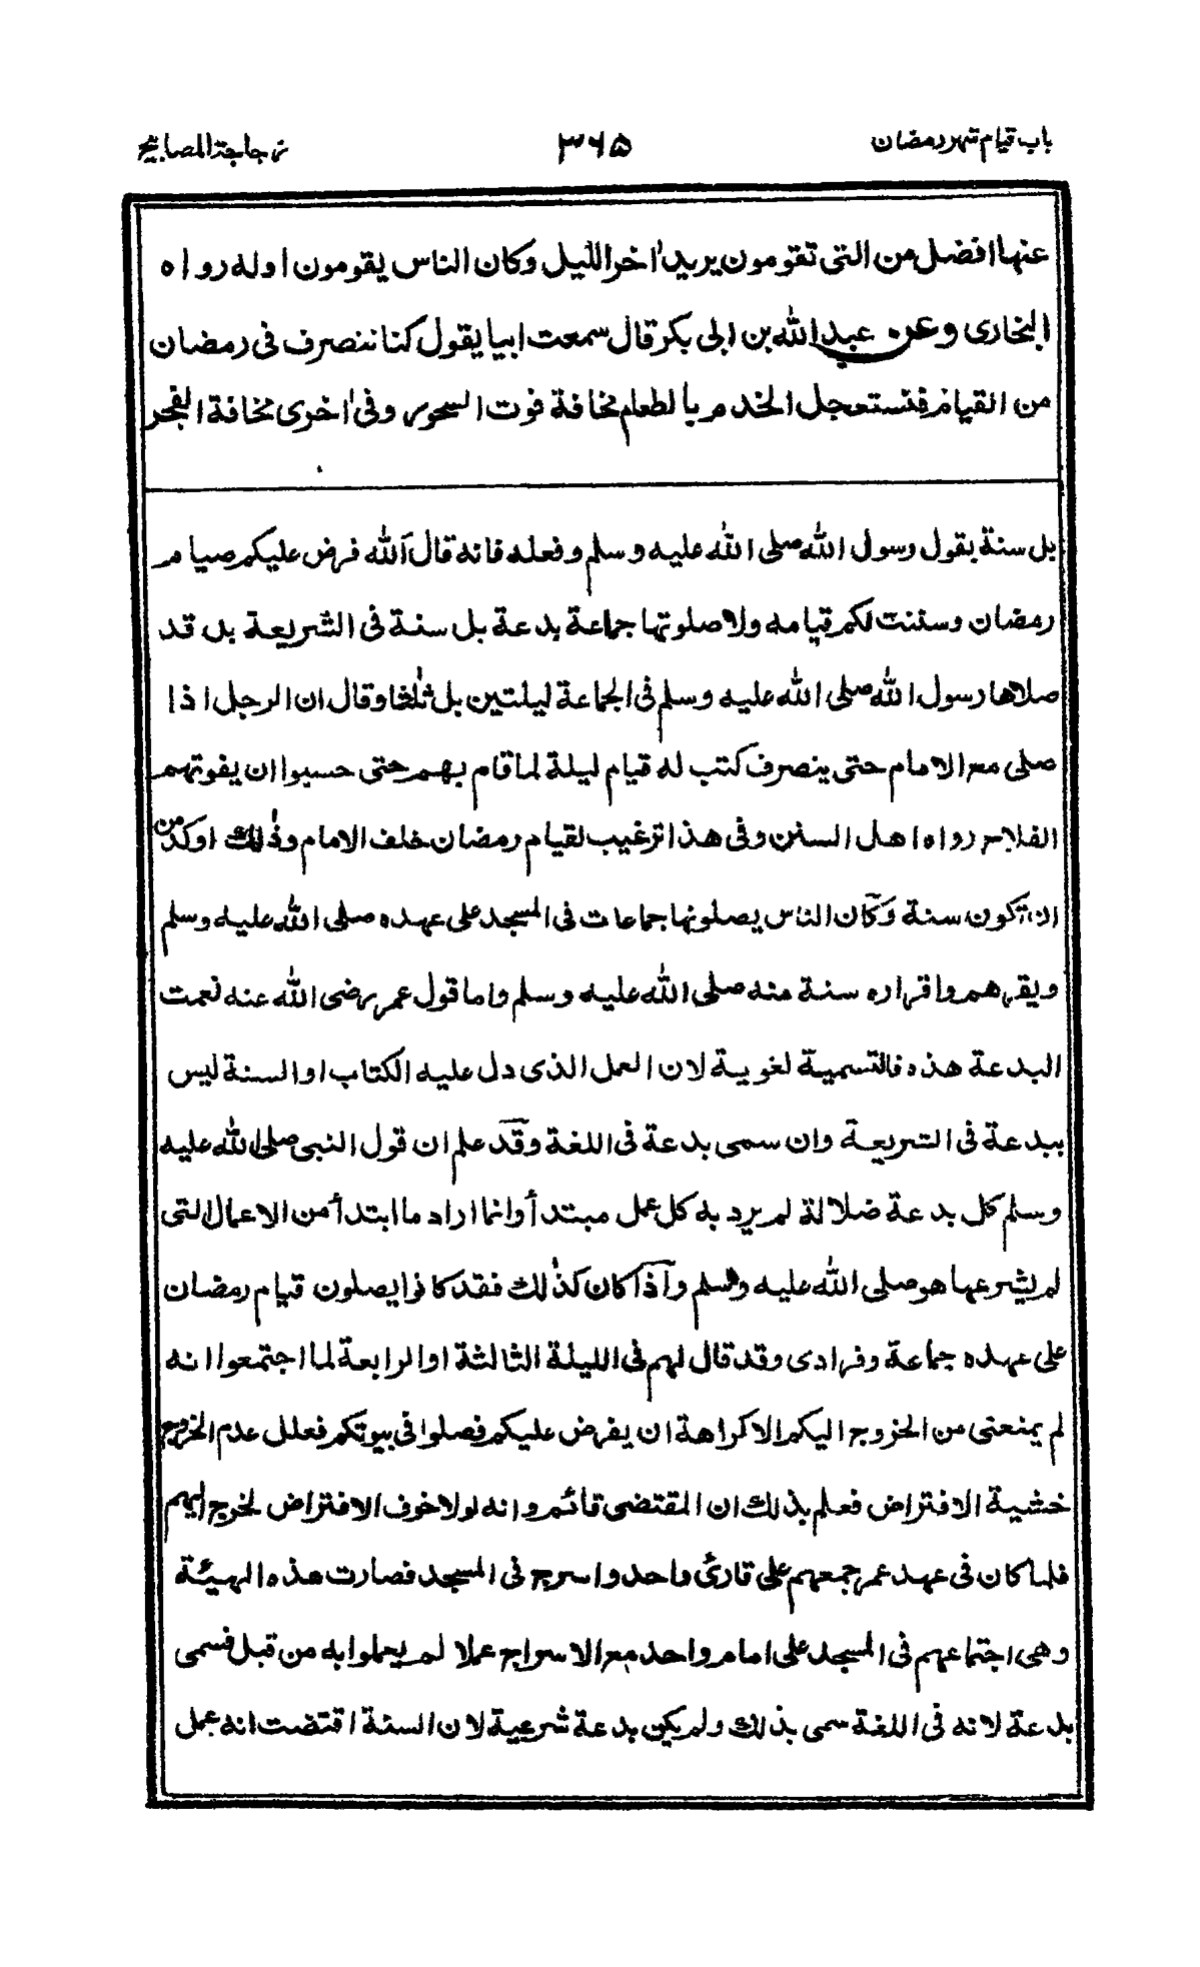 باب قيام شهر رمضان ٣٦٥ زجاجة المصابيح
عنها افضل من التى تقومون يريد اٰخر الليل وكان الناس يقومون اوله رواه
البخارى وعن عبد الله بن ابى بكر قال سمعت ابيا يقول كنا ننصرف فى رمضان
من القيام فنستعجل الخدم بالطعام مخافة فوت السحور وفى اٰخرى مخافة الفجر
بل سنة بقول رسول الله صلى الله عليه وسلم وفعله فانه قال اَلله فرض عليكم صيام
رمضان وسننت لكم قيامه ولا صلوتها جماعة بدعة بل سنة فى الشريعة بل قد
صلاها رسول الله صلى الله عليه وسلم فى الجماعة ليلتين بل ثلٰثا وقال ان الرجل اذا
صلى مع الامام حتى ينصرف كتب له قيام ليلة لما قام بهم حتى حسبوا ان يفوتهم
الفلاح رواه اهل السنن وفى هذا ترغيب لقيام رمضان خلف الامام وذٰلك اوكد من
ان تكون سنة وكان الناس يصلونها جماعات فى المسجد على عهده صلى الله عليه وسلم
ويقرهم واقراره سنة منه صلى الله عليه وسلم واما قول عمر رضى الله عنه نعمت
البدعة هذه فالتسمية لغوية لان العمل الذى دل عليه الكتاب او السنة ليس
ببدعة فى الشريعة وان سمى بدعة فى اللغة وقد علم ان قول النبى صلى الله عليه
وسلم كل بدعة ضلالة لم يرد به كل عمل مبتدأ وانما اراد ما ابتدأ من الاعمال التى
لم يشرعها هو صلى الله عليه وسلم واذا كان كذٰلك فقد كانوا يصلون قيام رمضان
على عهده جماعة وفرادى وقد قال لهم فى الليلة الثالثة او الرابعة لما اجتمعوا انه
لم يمنعنى من الخروج اليكم الا كراهة ان يفرض عليكم فصلوا فى بيوتكم فعلل عدم الخروج
خشية الافتراض فعلم بذلك ان المقتضى قائم وانه لولا خوف الافتراض لخرج اليهم
فلما كان فى عهد عمر جمعهم على قارئ واحد واسرج فى المسجد فصارت هذه الهيئة
وهى اجتماعهم فى المسجد على امام واحد مع الاسراج عملا لم يعملوا به من قبل فسمى
بدعة لانه فى اللغة سمى بذلك ولم يكن بدعة شرعية لان السنة اقتضت انه عمل